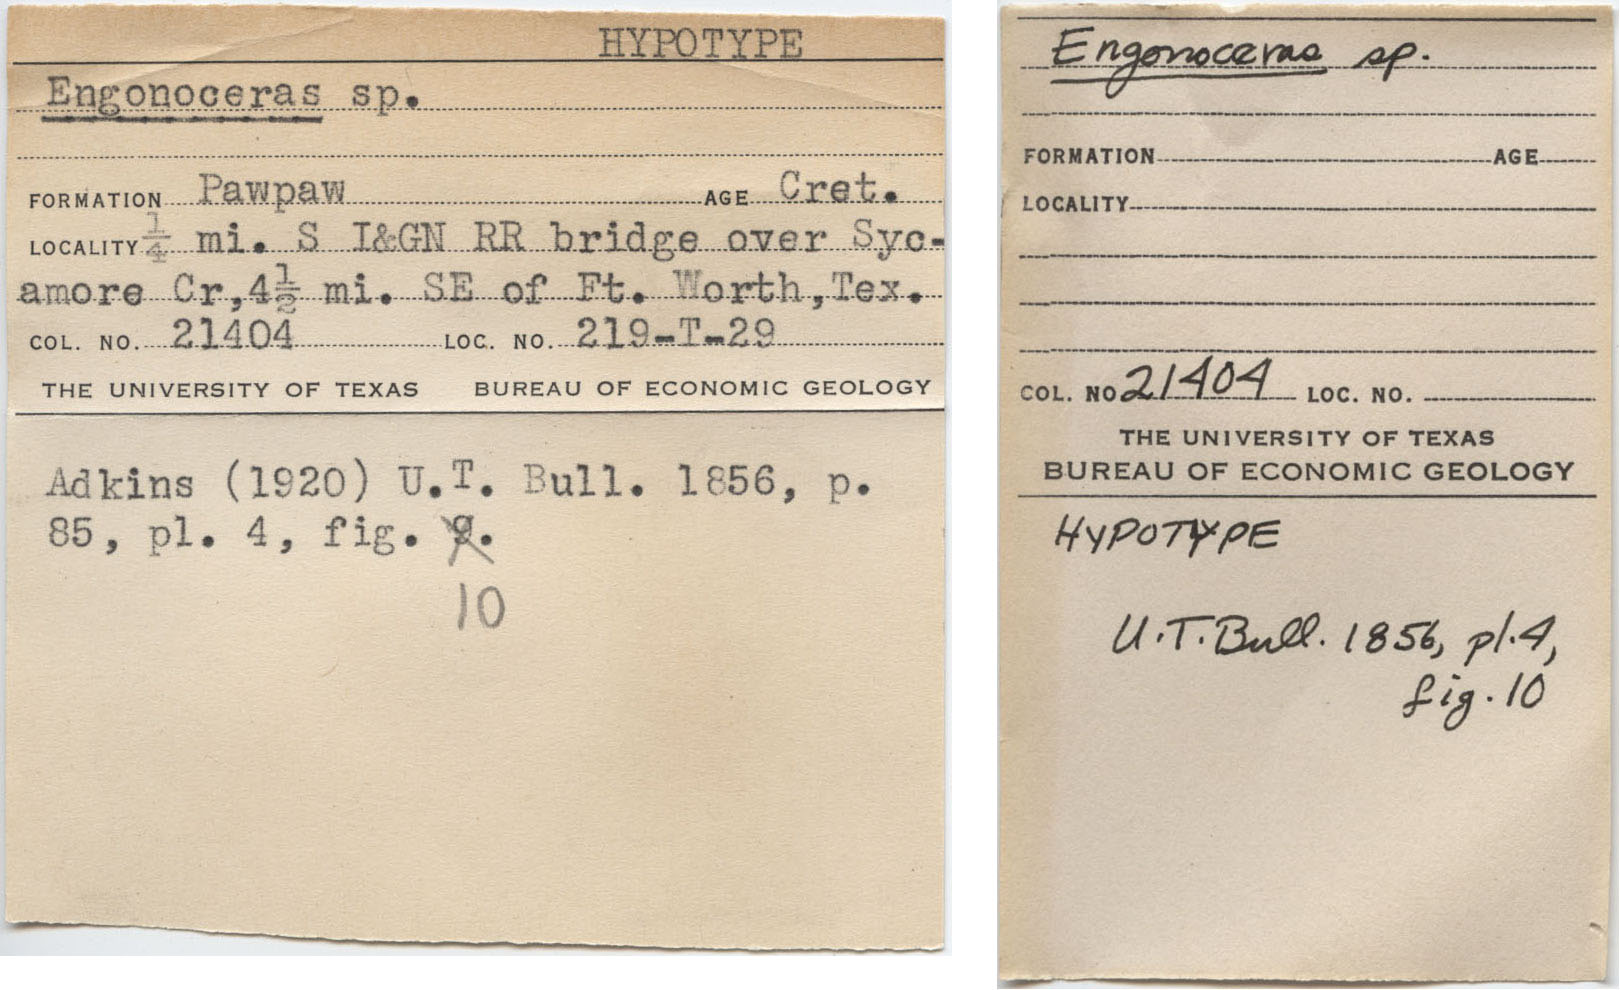 HYPOTYPE
Engonoceras sp.
FORMATION Pawpaw AGE Cret.
LOCALITY 1/4 mi. S I&GN RR bridge over Syc-
amore Cr,4 1/2 mi. SE of Ft. Worth,Tex.
COL. NO. 21404 LOC. NO. 219-T-29
THE UNIVERSITY OF TEXAS BUREAU OF ECONOMIC GEOLOGY
Adkins (1920) U.T. Bull. 1856, p.
85, pl. 4, fig. 9.
10
Engonoceras sp.
FORMATION AGE
LOCALITY
COL. NO 21404 LOC. NO.
THE UNIVERSITY OF TEXAS
BUREAU OF ECONOMIC GEOLOGY
HYPOTYPE
U.T. Bull. 1856, pl. 4,
fig. 10